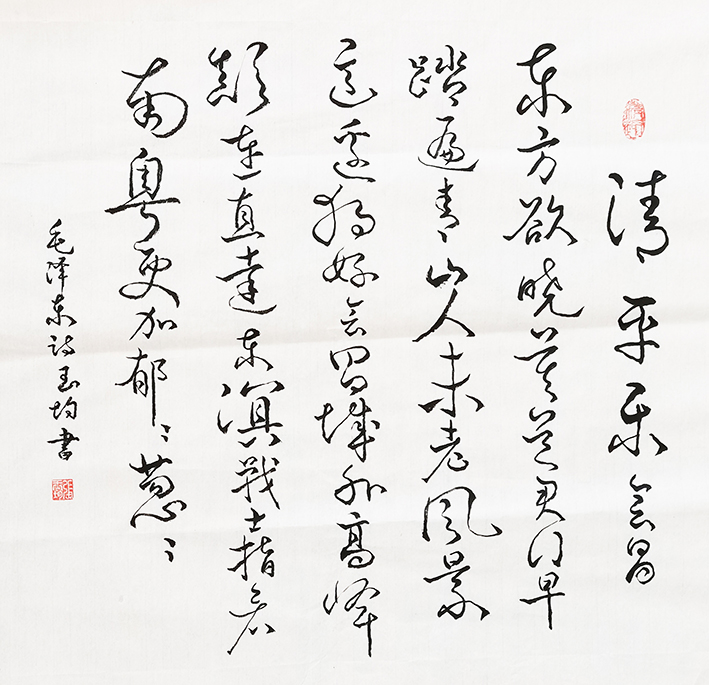 清平乐会昌
东方欲晓莫道君行早
踏遍青山人未老风景
这边独好会昌城外高峰
颠连直达东溟战士指看
南粤更加郁〻葱〻
毛泽东诗玉均书